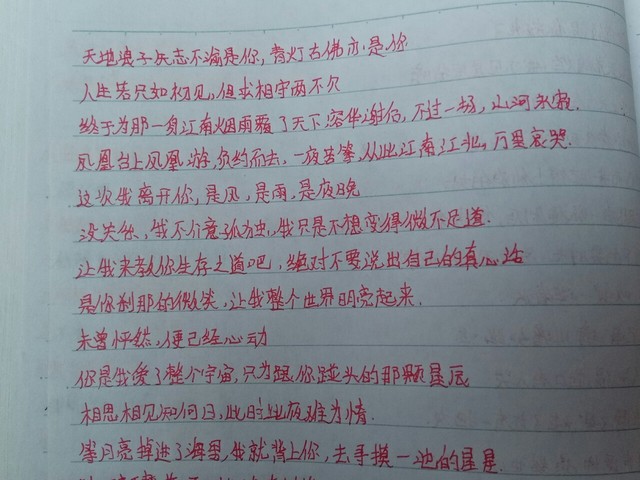 天地浪子矢志不渝是你，青灯古佛亦是你
人生若只如初见，但求相守两不欠
终于为那一身江南烟雨覆了天下，容华谢后，不过一场，山河永寂．
凤凰台上凤凰游，负约而去，一夜苦等，从此江南江北，万里哀哭．
这次我离开你，是风，是雨，是夜晚
没关系，我不介意孤独，我只是不想变得微不足道．
让我来教你生存之道吧，绝对不要说出自己的真心话
是你刹那的微笑，让我整个世界明亮起来．
未曾怦然，便已经心动
你是我爱了整个宇宙，只为跟你碰头的那颗星辰
相思相见知何日，此时此夜难为情．
等月亮掉进了海里，我就背上你，去手摸一池的星星．